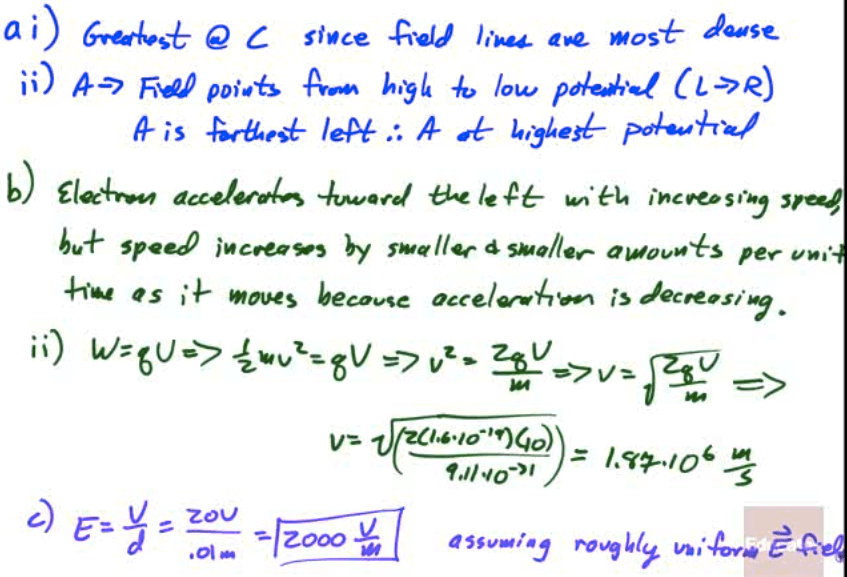 ai) Greatest @ C since field lines are most dense
ii) A => Field points from high to low potential (L->R)
A is farthest left ∴ A at highest potential
b) Electron accelerates toward the left with increasing speed,
but speed increases by smaller & smaller amounts per unit
time as it moves because acceleration is decreasing.
ii) W=qV => ½mv²=qV => v² = 2qV/m => v = √(2qV/m) =>
v = √(2(1.6·10⁻¹⁹)(10)/9.11·10⁻³¹) = 1.87·10⁶ m/s
c) E = V/d = 20V/.01m = 2000 V/m assuming roughly uniform E⃗ fiel